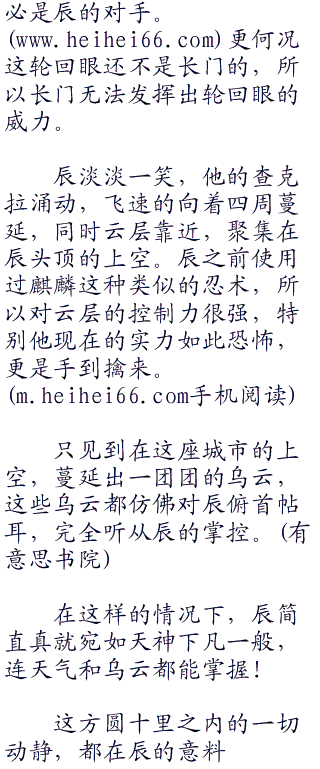 必是辰的对手。
(www.heihei66.com)更何况
这轮回眼还不是长门的，所
以长门无法发挥出轮回眼的
威力。
辰淡淡一笑，他的查克
拉涌动，飞速的向着四周蔓
延，同时云层靠近，聚集在
辰头顶的上空。辰之前使用
过麒麟这种类似的忍术，所
以对云层的控制力很强，特
别他现在的实力如此恐怖，
更是手到擒来。
(m.heihei66.com手机阅读)
只见到在这座城市的上
空，蔓延出一团团的乌云，
这些乌云都仿佛对辰俯首帖
耳，完全听从辰的掌控。(有
意思书院)
在这样的情况下，辰简
直真就宛如天神下凡一般，
连天气和乌云都能掌握！
这方圆十里之内的一切
动静，都在辰的意料